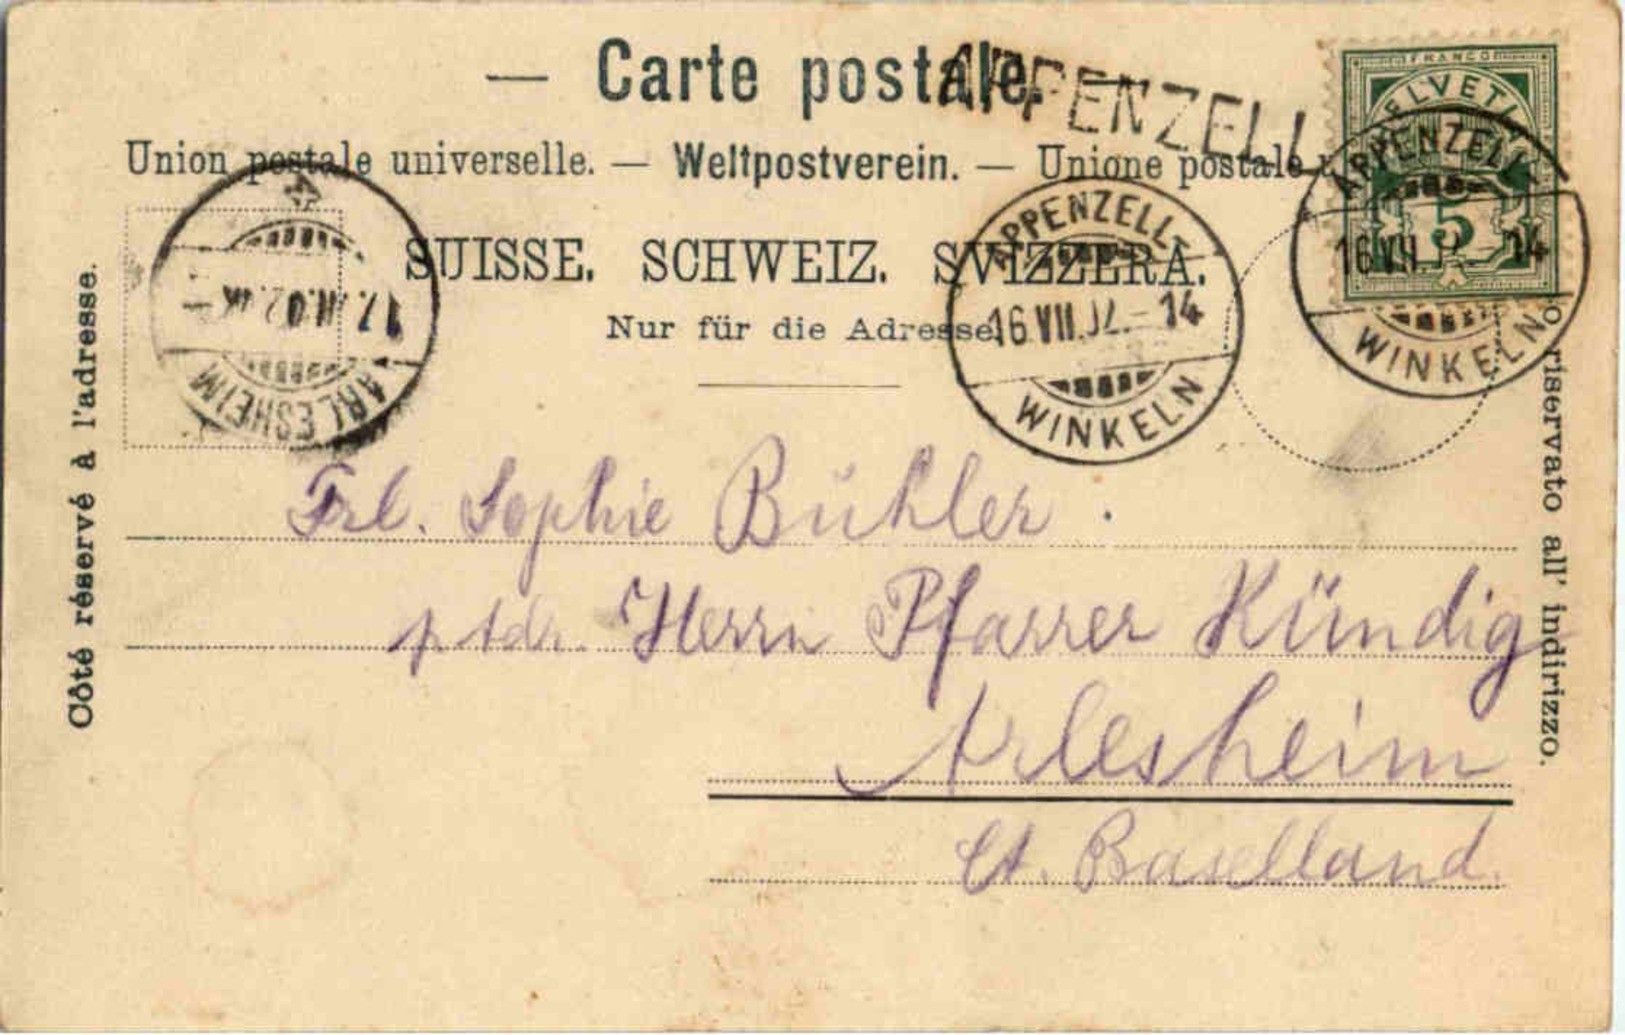 — Carte postale. —
APPENZELL
Union postale universelle. — Weltpostverein. — Unione postale
SUISSE. SCHWEIZ. SVIZZERA.
Nur für die Adresse
Côté réservé à l'adresse.
riservato all' indirizzo.
FRANCO
HELVETIA
5
APPENZELL-
16 VII. 02.-14
WINKELN
APPENZELL-
16 VII. 02.-14
WINKELN
17.VII.02.
ARLESHEIM
Frl. Sophie Bühler.
p. Adr. Herrn Pfarrer Kündig
Arlesheim
Ct. Baselland.